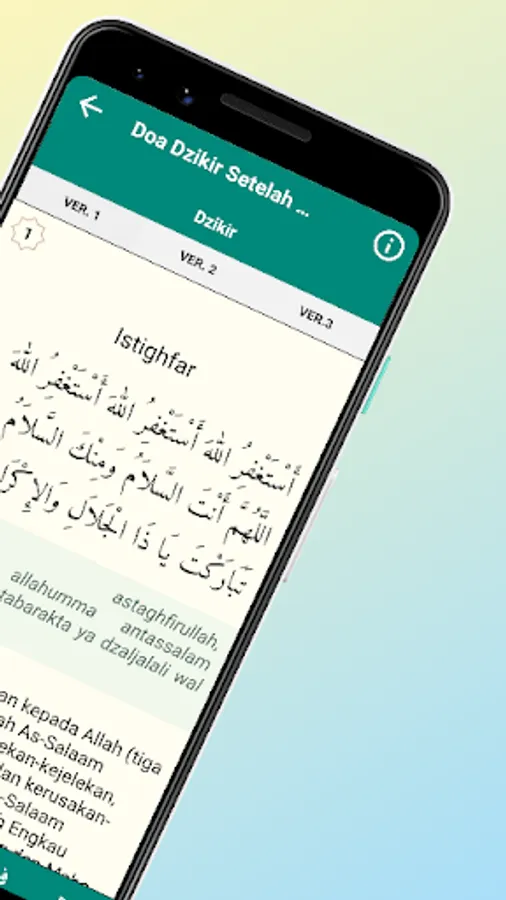 Doa Dzikir Setelah ...
Dzikir
VER. 1
VER. 2
VER.3
1
Istighfar
أَسْتَغْفِرُ اللهَ أَسْتَغْفِرُ اللهَ أَسْتَغْفِرُ اللهَ
اللَّهُمَّ أَنْتَ السَّلَامُ وَمِنْكَ السَّلَامُ
تَبَارَكْتَ يَا ذَا الْجَلَالِ وَالإِكْرَا
astaghfirullah,
allahumma antassalam
tabarakta ya dzaljalali wal
an kepada Allah (tiga
ah As-Salaam
ekan-kejelekan,
dan kerusakan-
-Salaam
Engkau